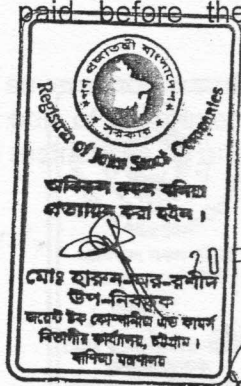 paid before the
গণপ্রজাতন্ত্রী বাংলাদেশ
সরকার
Registrar of Joint Stock Companies
অবিকল নকল বলিয়া
প্রত্যায়ন করা হইল।
20
মোঃ হারুন-অর-রশীদ
উপ-নিবন্ধক
জয়েন্ট স্টক কোম্পানীজ এন্ড ফার্মস
বিভাগীয় কার্যালয়, চট্টগ্রাম।
বাণিজ্য মন্ত্রণালয়